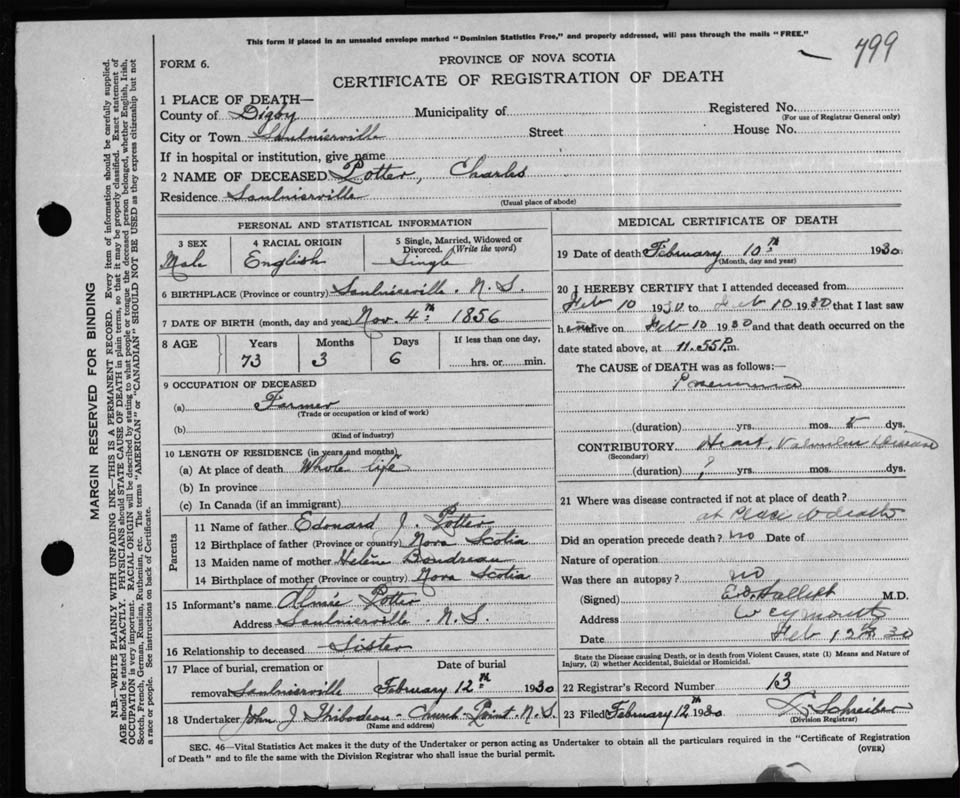 This form if placed in an unsealed envelope marked "Dominion Statistics Free," and properly addressed, will pass through the mails "FREE."
499
FORM 6.
PROVINCE OF NOVA SCOTIA
CERTIFICATE OF REGISTRATION OF DEATH
1 PLACE OF DEATH—
County of Digby Municipality of Registered No.
(For use of Registrar General only)
City or Town Saulnierville Street House No.
If in hospital or institution, give name
2 NAME OF DECEASED Potter, Charles
Residence Saulnierville
(Usual place of abode)
PERSONAL AND STATISTICAL INFORMATION
3 SEX 4 RACIAL ORIGIN 5 Single, Married, Widowed or Divorced. (Write the word)
Male English Single
6 BIRTHPLACE (Province or country) Saulnierville. N.S.
7 DATE OF BIRTH (month, day and year) Nov. 4th 1856
8 AGE Years Months Days If less than one day,
73 3 6 hrs. or min.
9 OCCUPATION OF DECEASED
(a) Farmer
(Trade or occupation or kind of work)
(b)
(Kind of industry)
10 LENGTH OF RESIDENCE (in years and months)
(a) At place of death Whole life
(b) In province
(c) In Canada (if an immigrant)
Parents
11 Name of father Edouard J. Potter
12 Birthplace of father (Province or country) Nova Scotia
13 Maiden name of mother Helène Boudreau
14 Birthplace of mother (Province or country) Nova Scotia
15 Informant's name Potter
Address Saulnierville. N.S.
16 Relationship to deceased Sister
17 Place of burial, cremation or Date of burial
removal Saulnierville February 12th 1930
18 Undertaker John J Thibodeau - Church Point. N.S.
(Name and address)
MEDICAL CERTIFICATE OF DEATH
19 Date of death February 10th 1930
(Month, day and year)
20 I HEREBY CERTIFY that I attended deceased from
Feb 10 1930 to Feb 10 1930 that I last saw
him alive on Feb 10 1930 and that death occurred on the
date stated above, at 11.55 P.m.
The CAUSE of DEATH was as follows:—
Pneumonia
(duration) yrs. mos. dys.
CONTRIBUTORY Heart, Valvular Disease
(Secondary)
(duration) ? yrs. mos. dys.
21 Where was disease contracted if not at place of death?
at Place of death
Did an operation precede death? no Date of
Nature of operation
Was there an autopsy? no
(Signed) M.D.
Address Weymouth
Date Feb 12th 30
State the Disease causing Death, or in death from Violent Causes, state (1) Means and Nature of
Injury, (2) whether Accidental, Suicidal or Homicidal.
22 Registrar's Record Number 13
23 Filed February 12th 1930 Schreiber
(Division Registrar)
SEC. 46—Vital Statistics Act makes it the duty of the Undertaker or person acting as Undertaker to obtain all the particulars required in the "Certificate of Registration
of Death" and to file the same with the Division Registrar who shall issue the burial permit. (OVER)
MARGIN RESERVED FOR BINDING
N.B.—WRITE PLAINLY WITH UNFADING INK—THIS IS A PERMANENT RECORD. Every item of information should be carefully supplied.
AGE should be stated EXACTLY. PHYSICIANS should STATE CAUSE OF DEATH in plain terms, so that it may be properly classified. Exact statement of
OCCUPATION is very important. RACIAL ORIGIN will be described by stating to what people or tongue the deceased person belonged, whether English, Irish,
Scotch, French, German, Russian, Ruthenian, etc. The terms "AMERICAN" or "CANADIAN" SHOULD NOT BE USED as they express citizenship but not
a race or people. See instructions on back of Certificate.